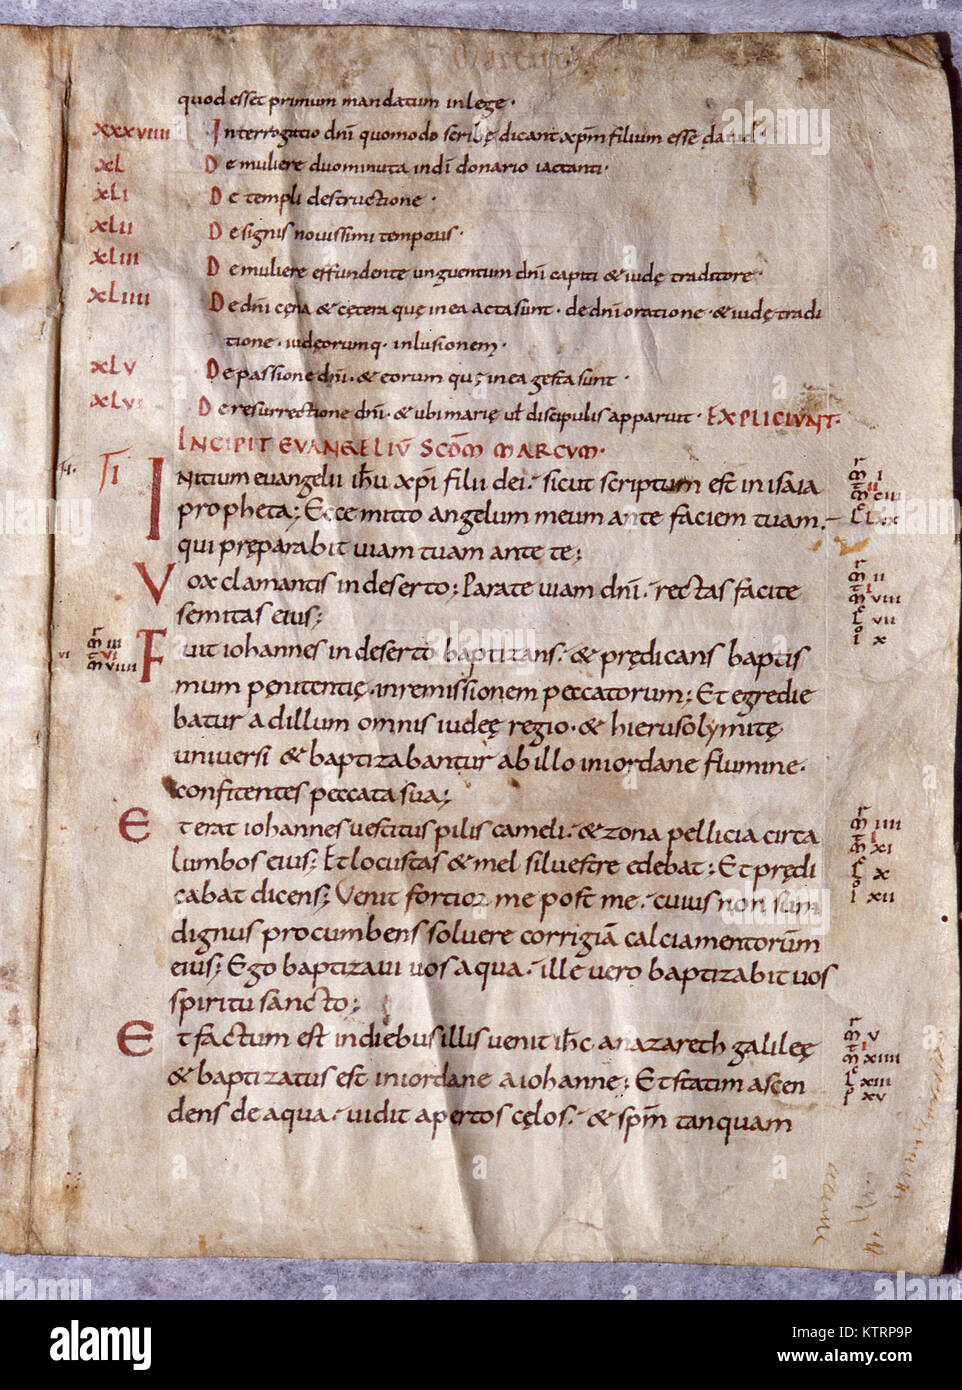 quod esset primum mandatum in lege·
xxxviiii Interrogatio dnī quomodo scribę dicant xp̄m filium esse dauid
xL De muliere duo minuta in dn̄i donario iactanti·
xLI De templi destructione·
xLII De signis nouissimi temporis·
xLIII De muliere effundente unguentum dn̄i capiti & iudę traditore·
xLIIII De dn̄i cęna & cętera quę in ea acta sunt· de dn̄i oratione· & iudę tradi
tione· iudęorumq· inlusionem·
xLV De passione dn̄i· & eorum quę in ea gesta sunt·
xLVI De resurrectione dn̄i· & ubi marię ul̄ discipulis apparuit· EXPLICIUNT·
INCIPIT EVANGELIŪ SCD̄M MARCUM·
INITIUM euangelii ih̄u xp̄i filii dei· sicut scriptum est in isaia
propheta; Ecce mitto angelum meum ante faciem tuam·
qui pręparabit uiam tuam ante te;
Vox clamantis in deserto; Parate uiam dn̄i· rectas facite
semitas eius;
Fuit iohannes in deserto baptizans· & prędicans baptis
mum pęnitentię· in remissionem peccatorum; Et egredie
batur ad illum omnis iudęę regio· & hierusolymitę
uniuersi & baptizabantur ab illo in iordane flumine·
confitentes peccata sua;
Et erat iohannes uestitus pilis cameli· & zona pellicia circa
lumbos eius; Et locustas & mel siluestre edebat; Et prędi
cabat dicens; Venit fortior me post me· cuius non sum
dignus procumbens soluere corrigiā calciamentorūm
eius; Ego baptizaui uos aqua· ille uero baptizabit uos
spiritu sancto;
Et factum est in diebus illis uenit ih̄c a nazareth galileę
& baptizatus est in iordane a iohanne; Et statim ascen
dens de aqua· uidit apertos cęlos· & sp̄m tanquam
alamy
Image ID: KTRP9P
www.alamy.com